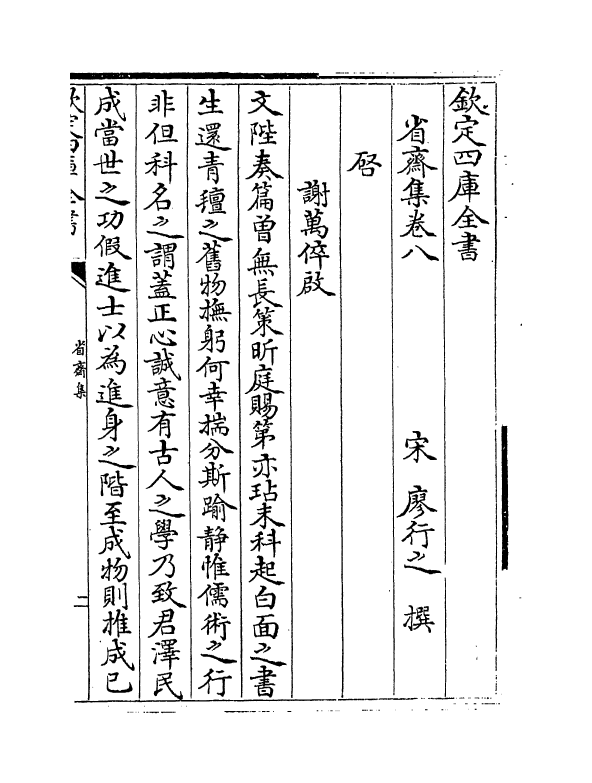 欽定四庫全書
省齋集卷八
宋 廖行之 撰
啓
謝萬倅啟
文陛奏篇曽無長策昕庭賜第亦玷末科起白面之書
生還青氊之舊物撫躬何幸揣分斯踰静惟儒術之行
非但科名之謂蓋正心誠意有古人之學乃致君澤民
成當世之功假進士以為進身之階至成物則推成已
欽定四庫全書
省齋集
二